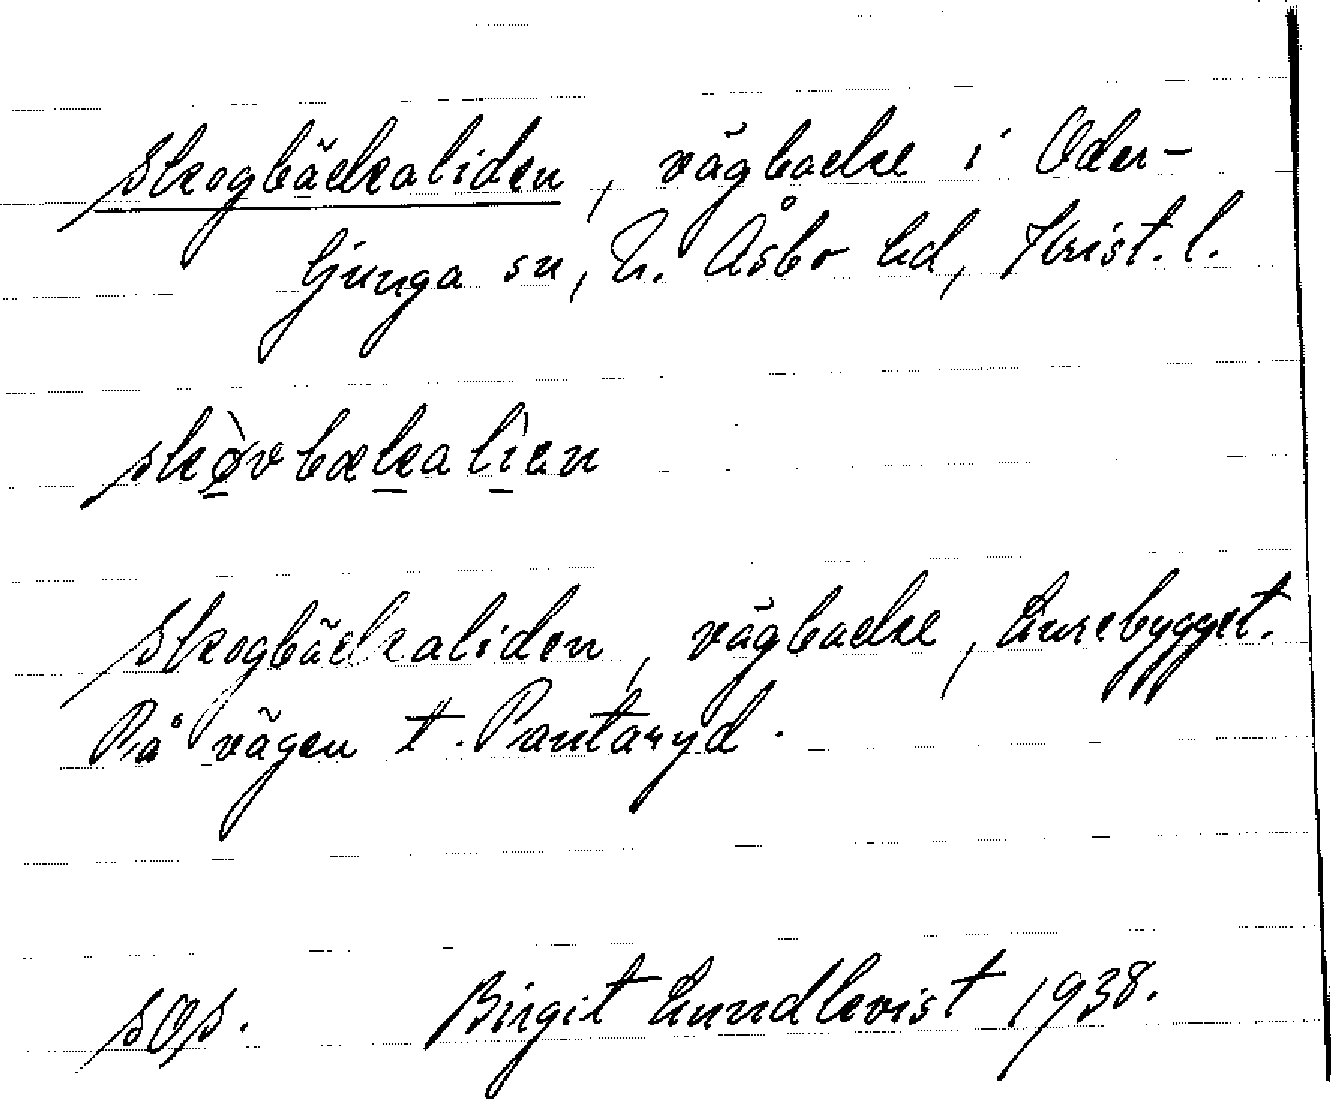 Skogbäckaliden, vägbacke i Oder-
ljunga sn, N. Åsbo hd, Krist. l.
skǿvbækalìen
Skogbäckaliden, vägbacke,
På vägen t. Pantaryd.
SOS. Birgit Lundkvist 1938.